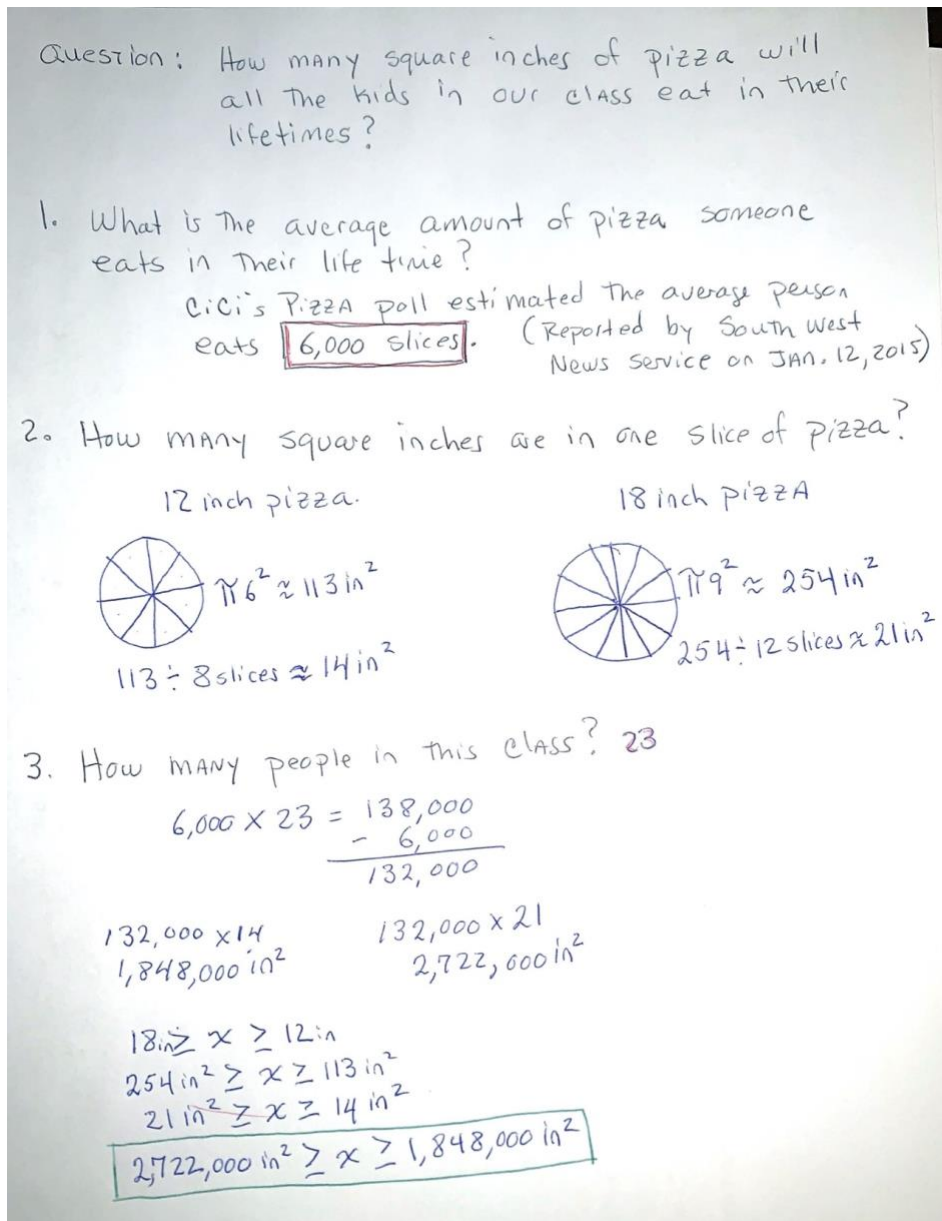 Question: How many square inches of pizza will
all The kids in our class eat in their
lifetimes?
1. What is The average amount of pizza someone
eats in Their life time?
CiCi's PizzA poll estimated The average person
eats 6,000 slices. (Reported by South West
News Service on JAn. 12, 2015)
2. How mAny square inches are in one slice of pizza?
12 inch pizza.
18 inch pizzA
π6² ≈ 113 in²
π9² ≈ 254 in²
113 ÷ 8 slices ≈ 14 in²
254 ÷ 12 slices ≈ 21 in²
3. How mANy people in this class? 23
6,000 X 23 = 138,000
- 6,000
132,000
132,000 x 14
132,000 x 21
1,848,000 in²
2,722,000 in²
18in ≥ x ≥ 12in
254 in² ≥ x ≥ 113 in²
21 in² ≥ x ≥ 14 in²
2,722,000 in² ≥ x ≥ 1,848,000 in²